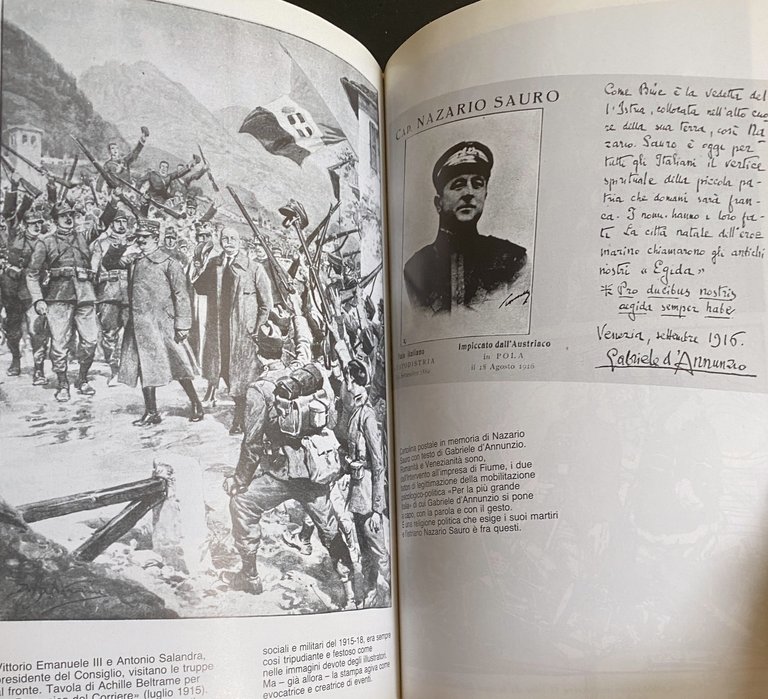 Vittorio Emanuele III e Antonio Salandra,
presidente del Consiglio, visitano le truppe
al fronte. Tavola di Achille Beltrame per
del Corriere» (luglio 1915).
sociali e militari del 1915-18, era sempre
così tripudiante e festoso come
nelle immagini devote degli illustratori.
Ma – già allora – la stampa agiva come
evocatrice e creatrice di eventi.
CAP. NAZARIO SAURO
italiano
Impiccato dall'Austriaco
in POLA
il 18 Agosto 1916
Come Buie è la vedetta del
l'Istria, collocata nell'alto cuo
re della sua terra, così Na
zario Sauro è oggi per
tutti gli Italiani il vertice
spirituale della piccola pa
tria che domani sarà fran
ca. I nomi hanno i loro fa
ti. La città natale dell'eroe
marino chiamarono gli antichi
nostri « Egida »
Pro ducibus nostris
aegida semper habe
Venezia, settembre 1916.
Gabriele d'Annunzio
Cartolina postale in memoria di Nazario
Sauro con testo di Gabriele d'Annunzio.
Romanità e Venezianità sono,
dall'intervento all'impresa di Fiume, i due
di legittimazione della mobilitazione
psicologico-politica «Per la più grande
Italia» di cui Gabriele d'Annunzio si pone
a capo, con la parola e con il gesto.
È una religione politica che esige i suoi martiri
e l'istriano Nazario Sauro è fra questi.